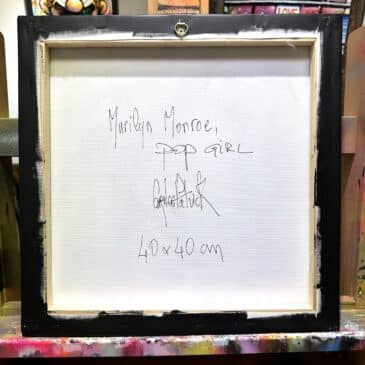 Marilyn Monroe,
pop GIRL
40x40 cm
LOVE